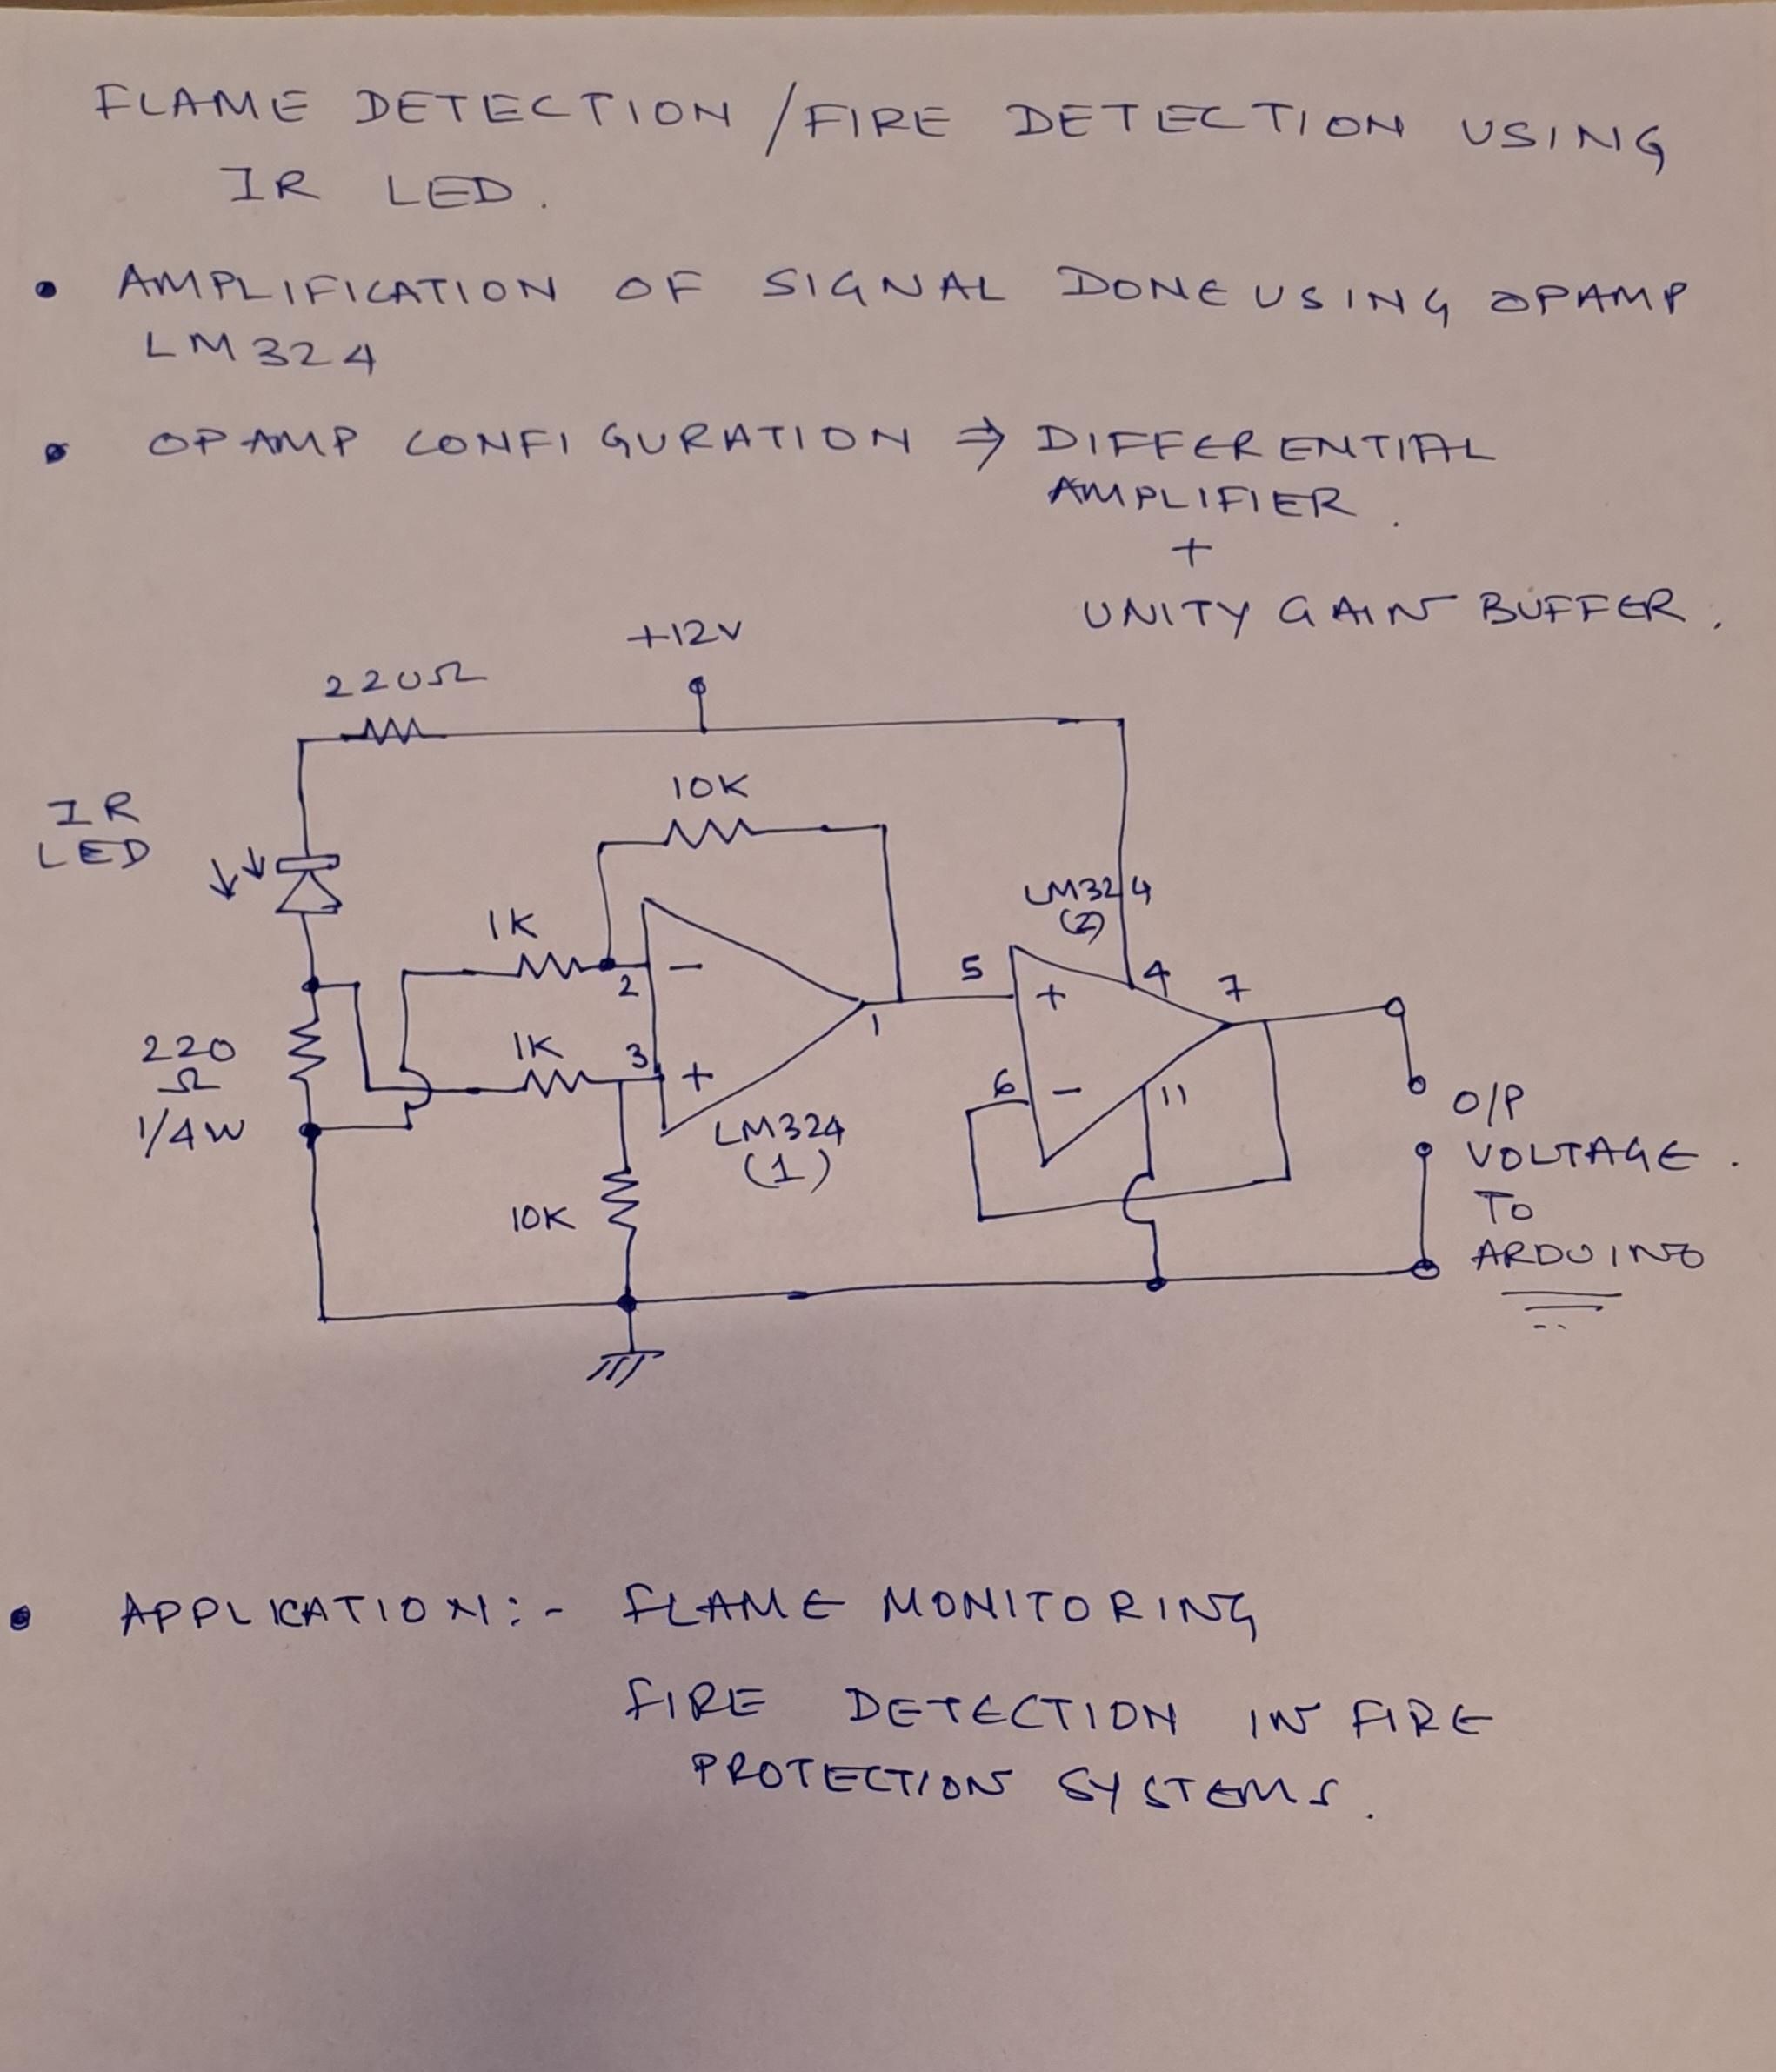 FLAME DETECTION / FIRE DETECTION USING
IR LED.
• AMPLIFICATION OF SIGNAL DONE USING OPAMP
LM324
• OPAMP CONFIGURATION ⇒ DIFFERENTIAL
AMPLIFIER.
+
UNITY GAIN BUFFER.
+12V
220Ω
10K
IR
LED
LM324
(2)
1K
2
-
5
+
4
7
1
220
Ω
1/4W
1K
3
+
6
-
11
LM324
(1)
10K
O/P
VOLTAGE.
TO
ARDUINO
• APPLICATION:- FLAME MONITORING
FIRE DETECTION IN FIRE
PROTECTION SYSTEMS.